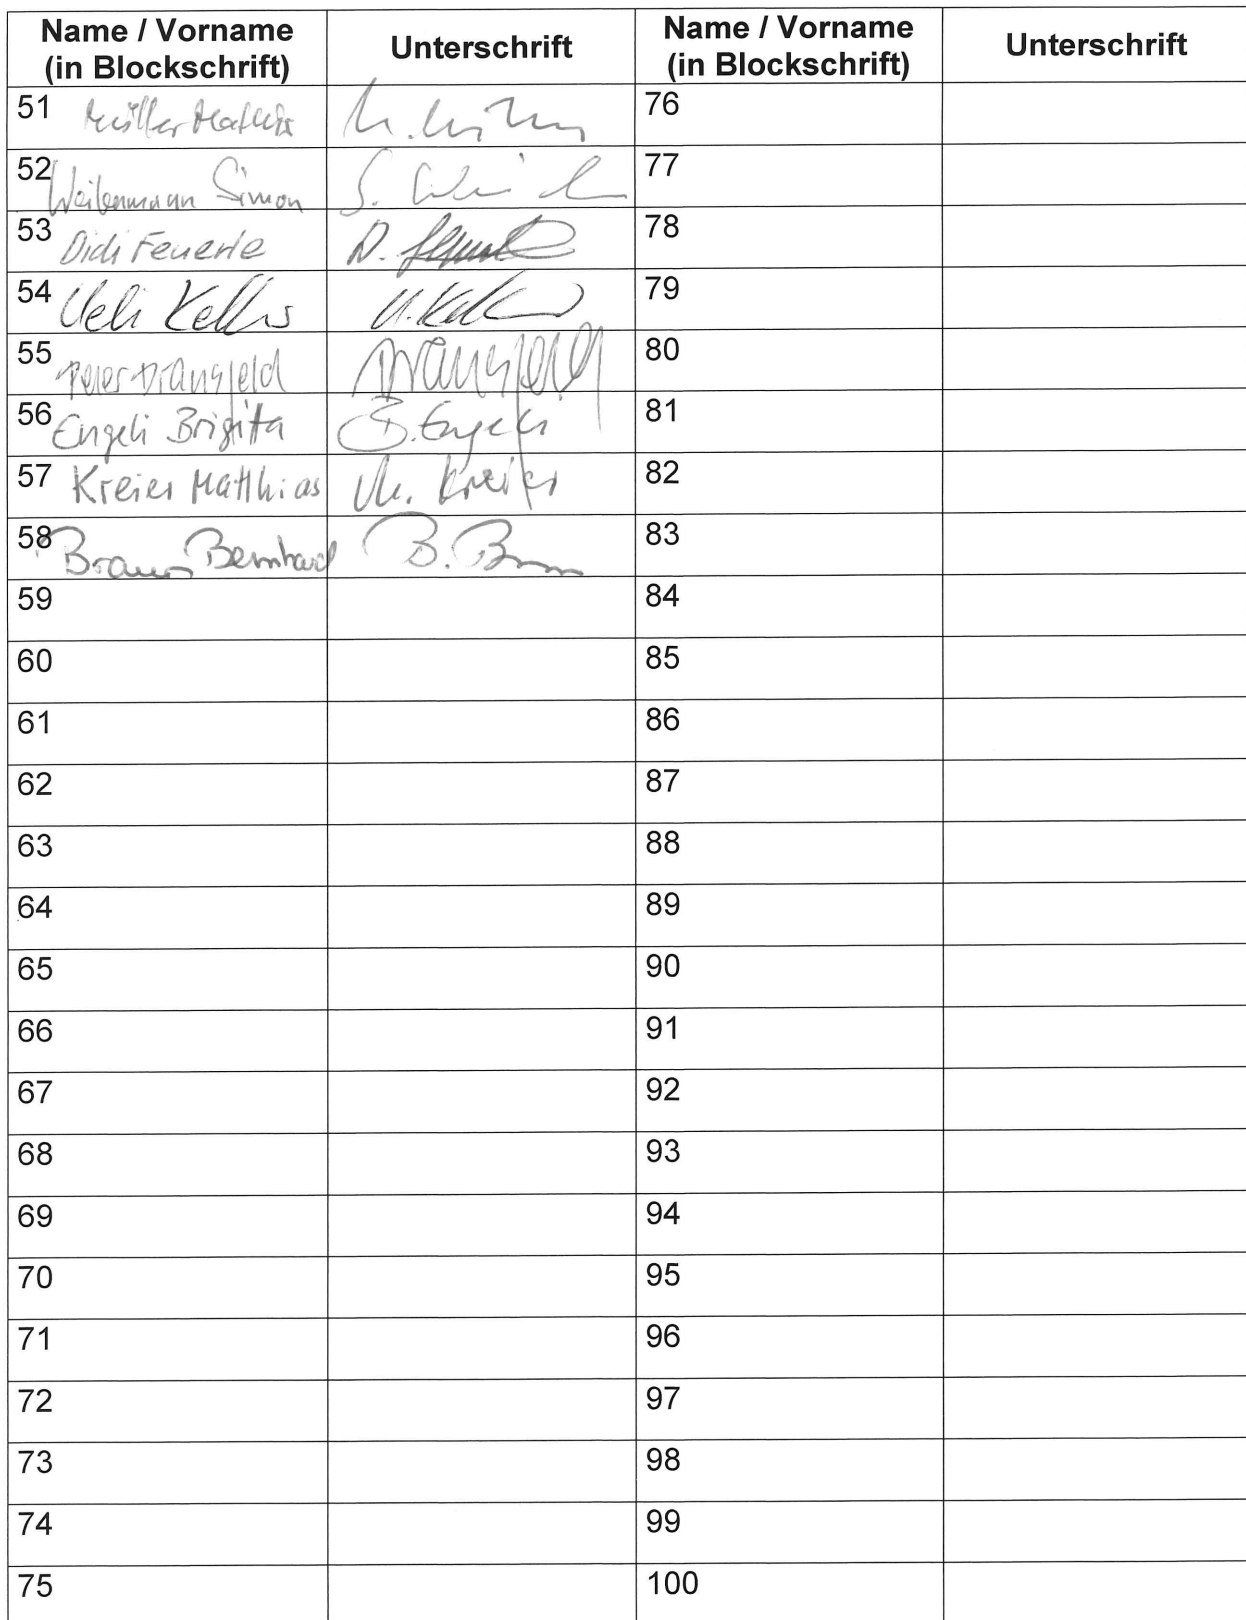 Name / Vorname (in Blockschrift) Unterschrift Name / Vorname (in Blockschrift) Unterschrift
51 Müller Mathis 76
52 Weibenmann Simon 77
53 Didi Feuerle D. 78
54 Ueli Keller U. Keller 79
55 Peter Dransfeld Dransfeld 80
56 Engeli Brigitta B. Engeli 81
57 Kreier Matthias M. Kreier 82
58 Braun Bernhard B. Braun 83
59 84
60 85
61 86
62 87
63 88
64 89
65 90
66 91
67 92
68 93
69 94
70 95
71 96
72 97
73 98
74 99
75 100